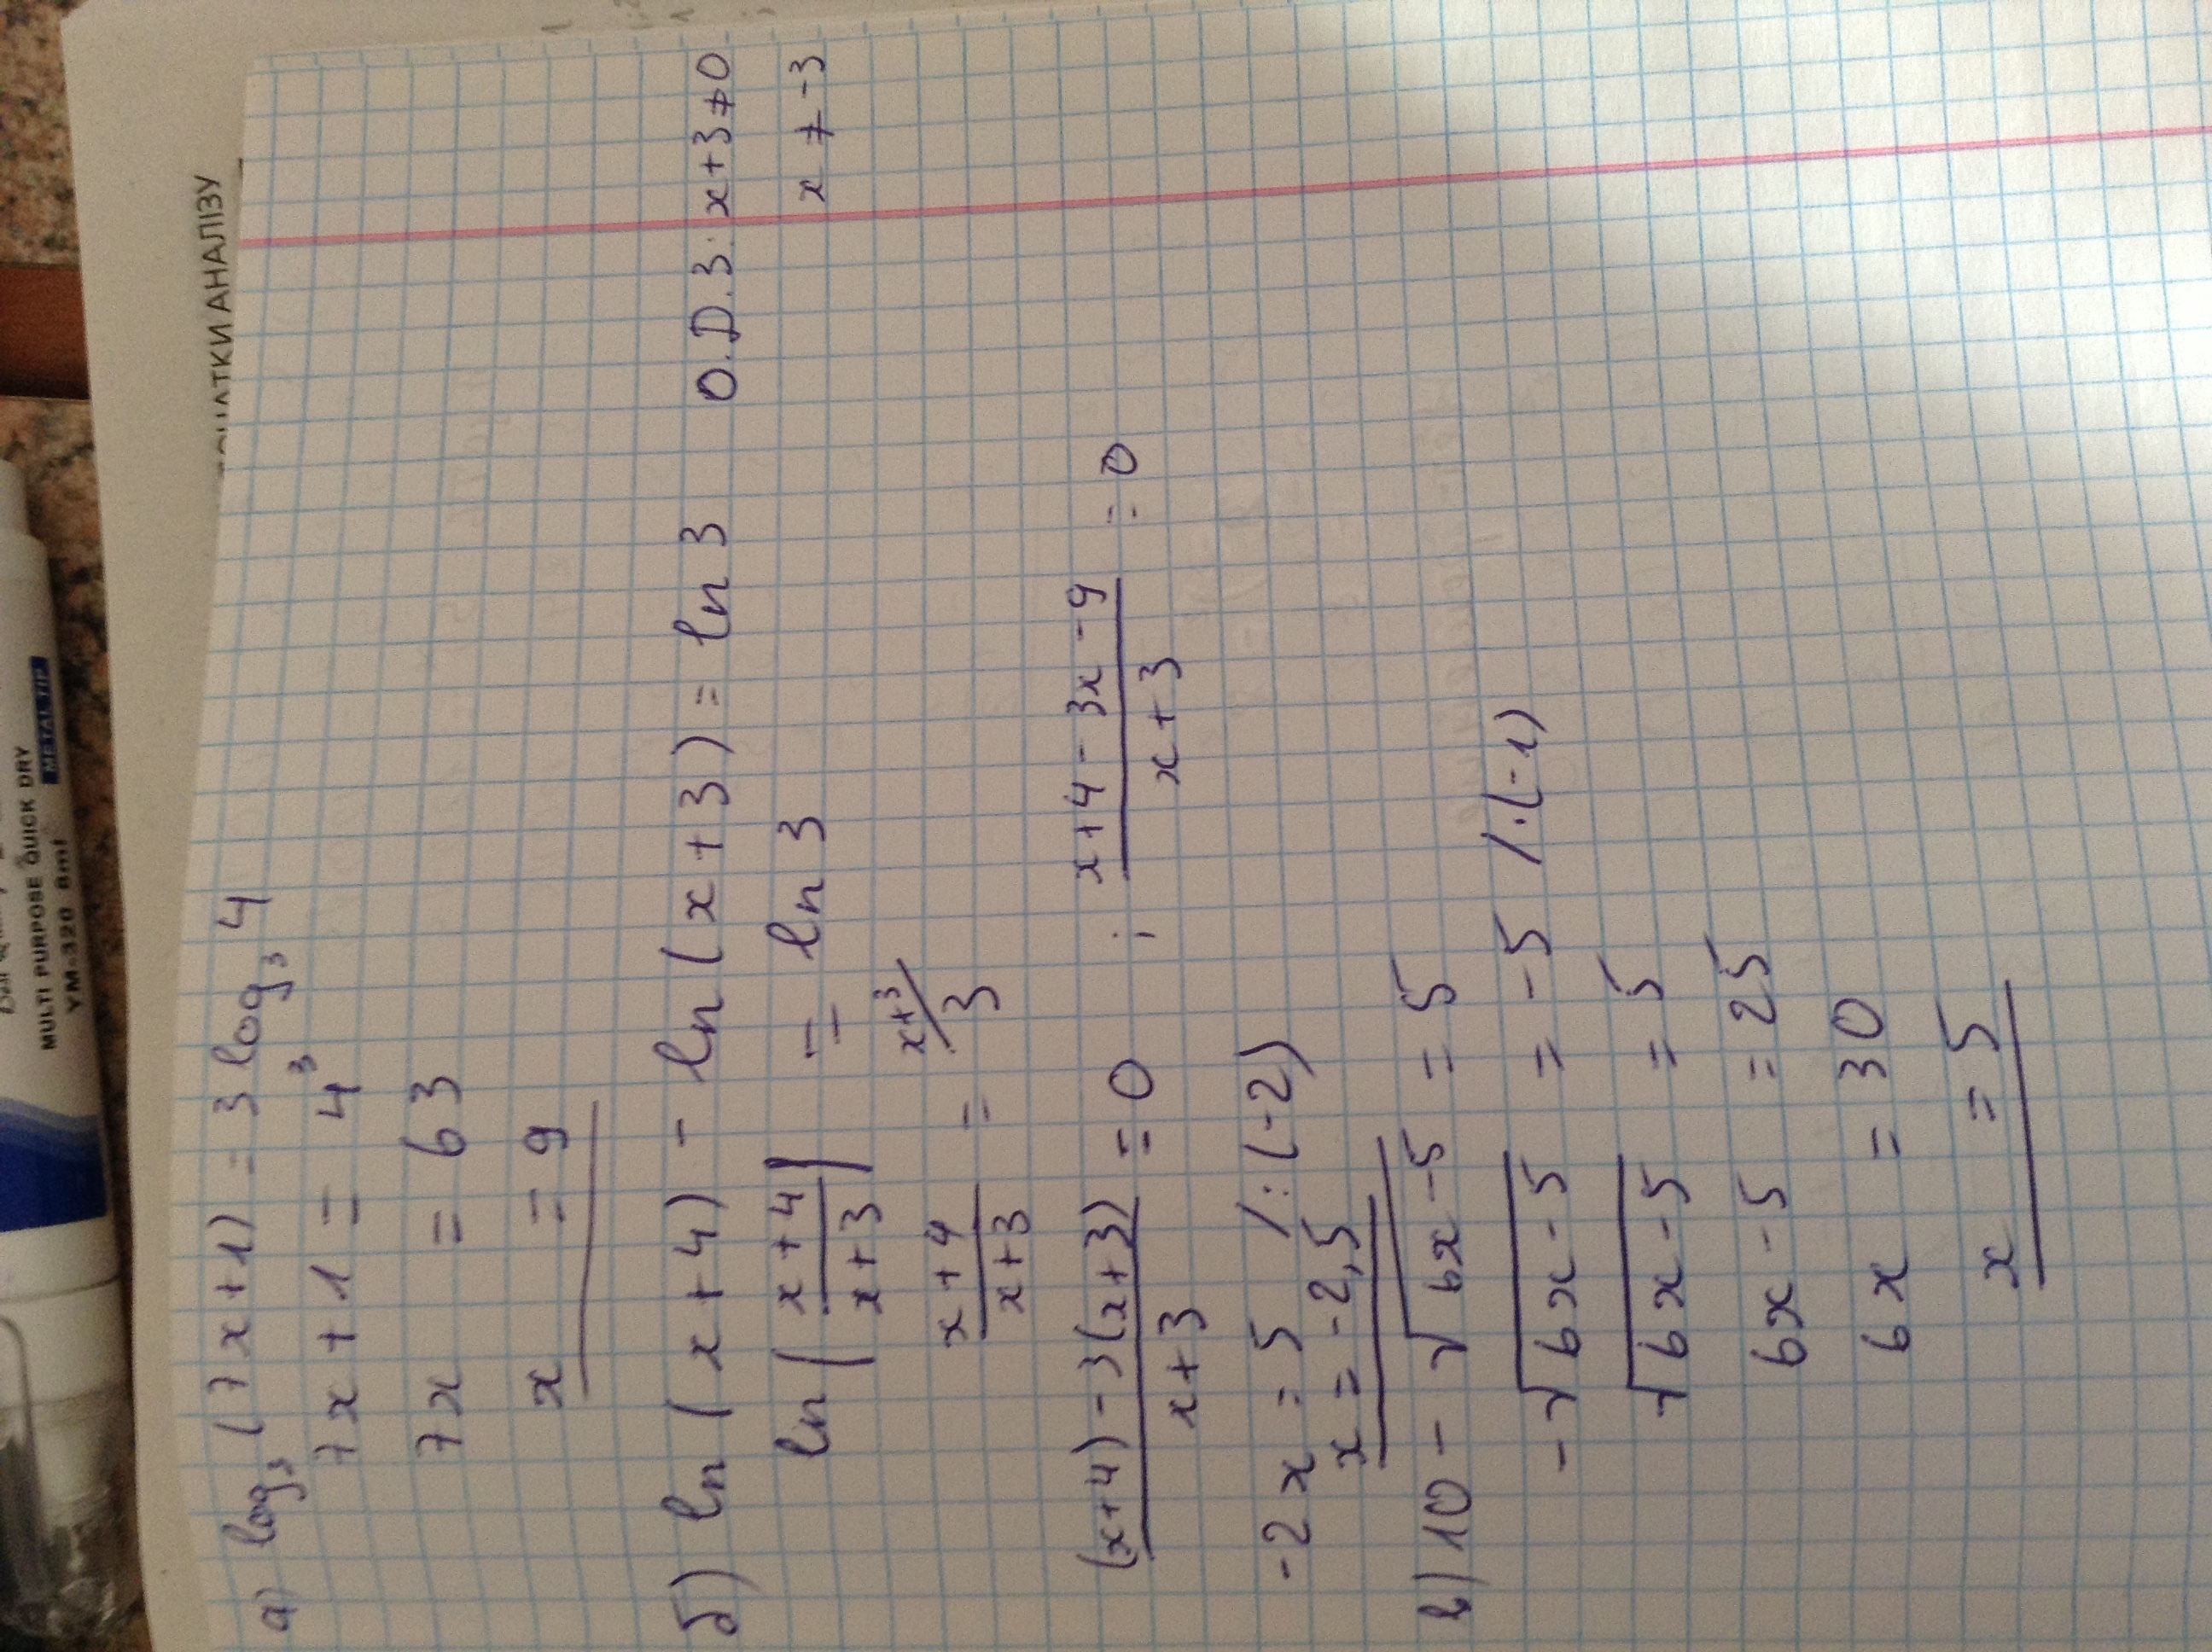 MULTI PURPOSE QUICK DRY
YM-320 8ml METAL TIP
АНАЛІЗУ
а) log₃(7x+1) = 3 log₃ 4
7x+1 = 4³
7x = 63
x = 9
б) ln(x+4) - ln(x+3) = ln 3 О.Д.З: x+3≠0
ln(x+4/x+3) = ln 3 x ≠ -3
x+4/x+3 = 3 x+3/
(x+4)-3(x+3)/x+3 = 0 ; x+4-3x-9/x+3 = 0
-2x = 5 /:(-2)
x = -2,5
в) 10 - √6x-5 = 5
-√6x-5 = -5 /·(-1)
√6x-5 = 5
6x-5 = 25
6x = 30
x = 5